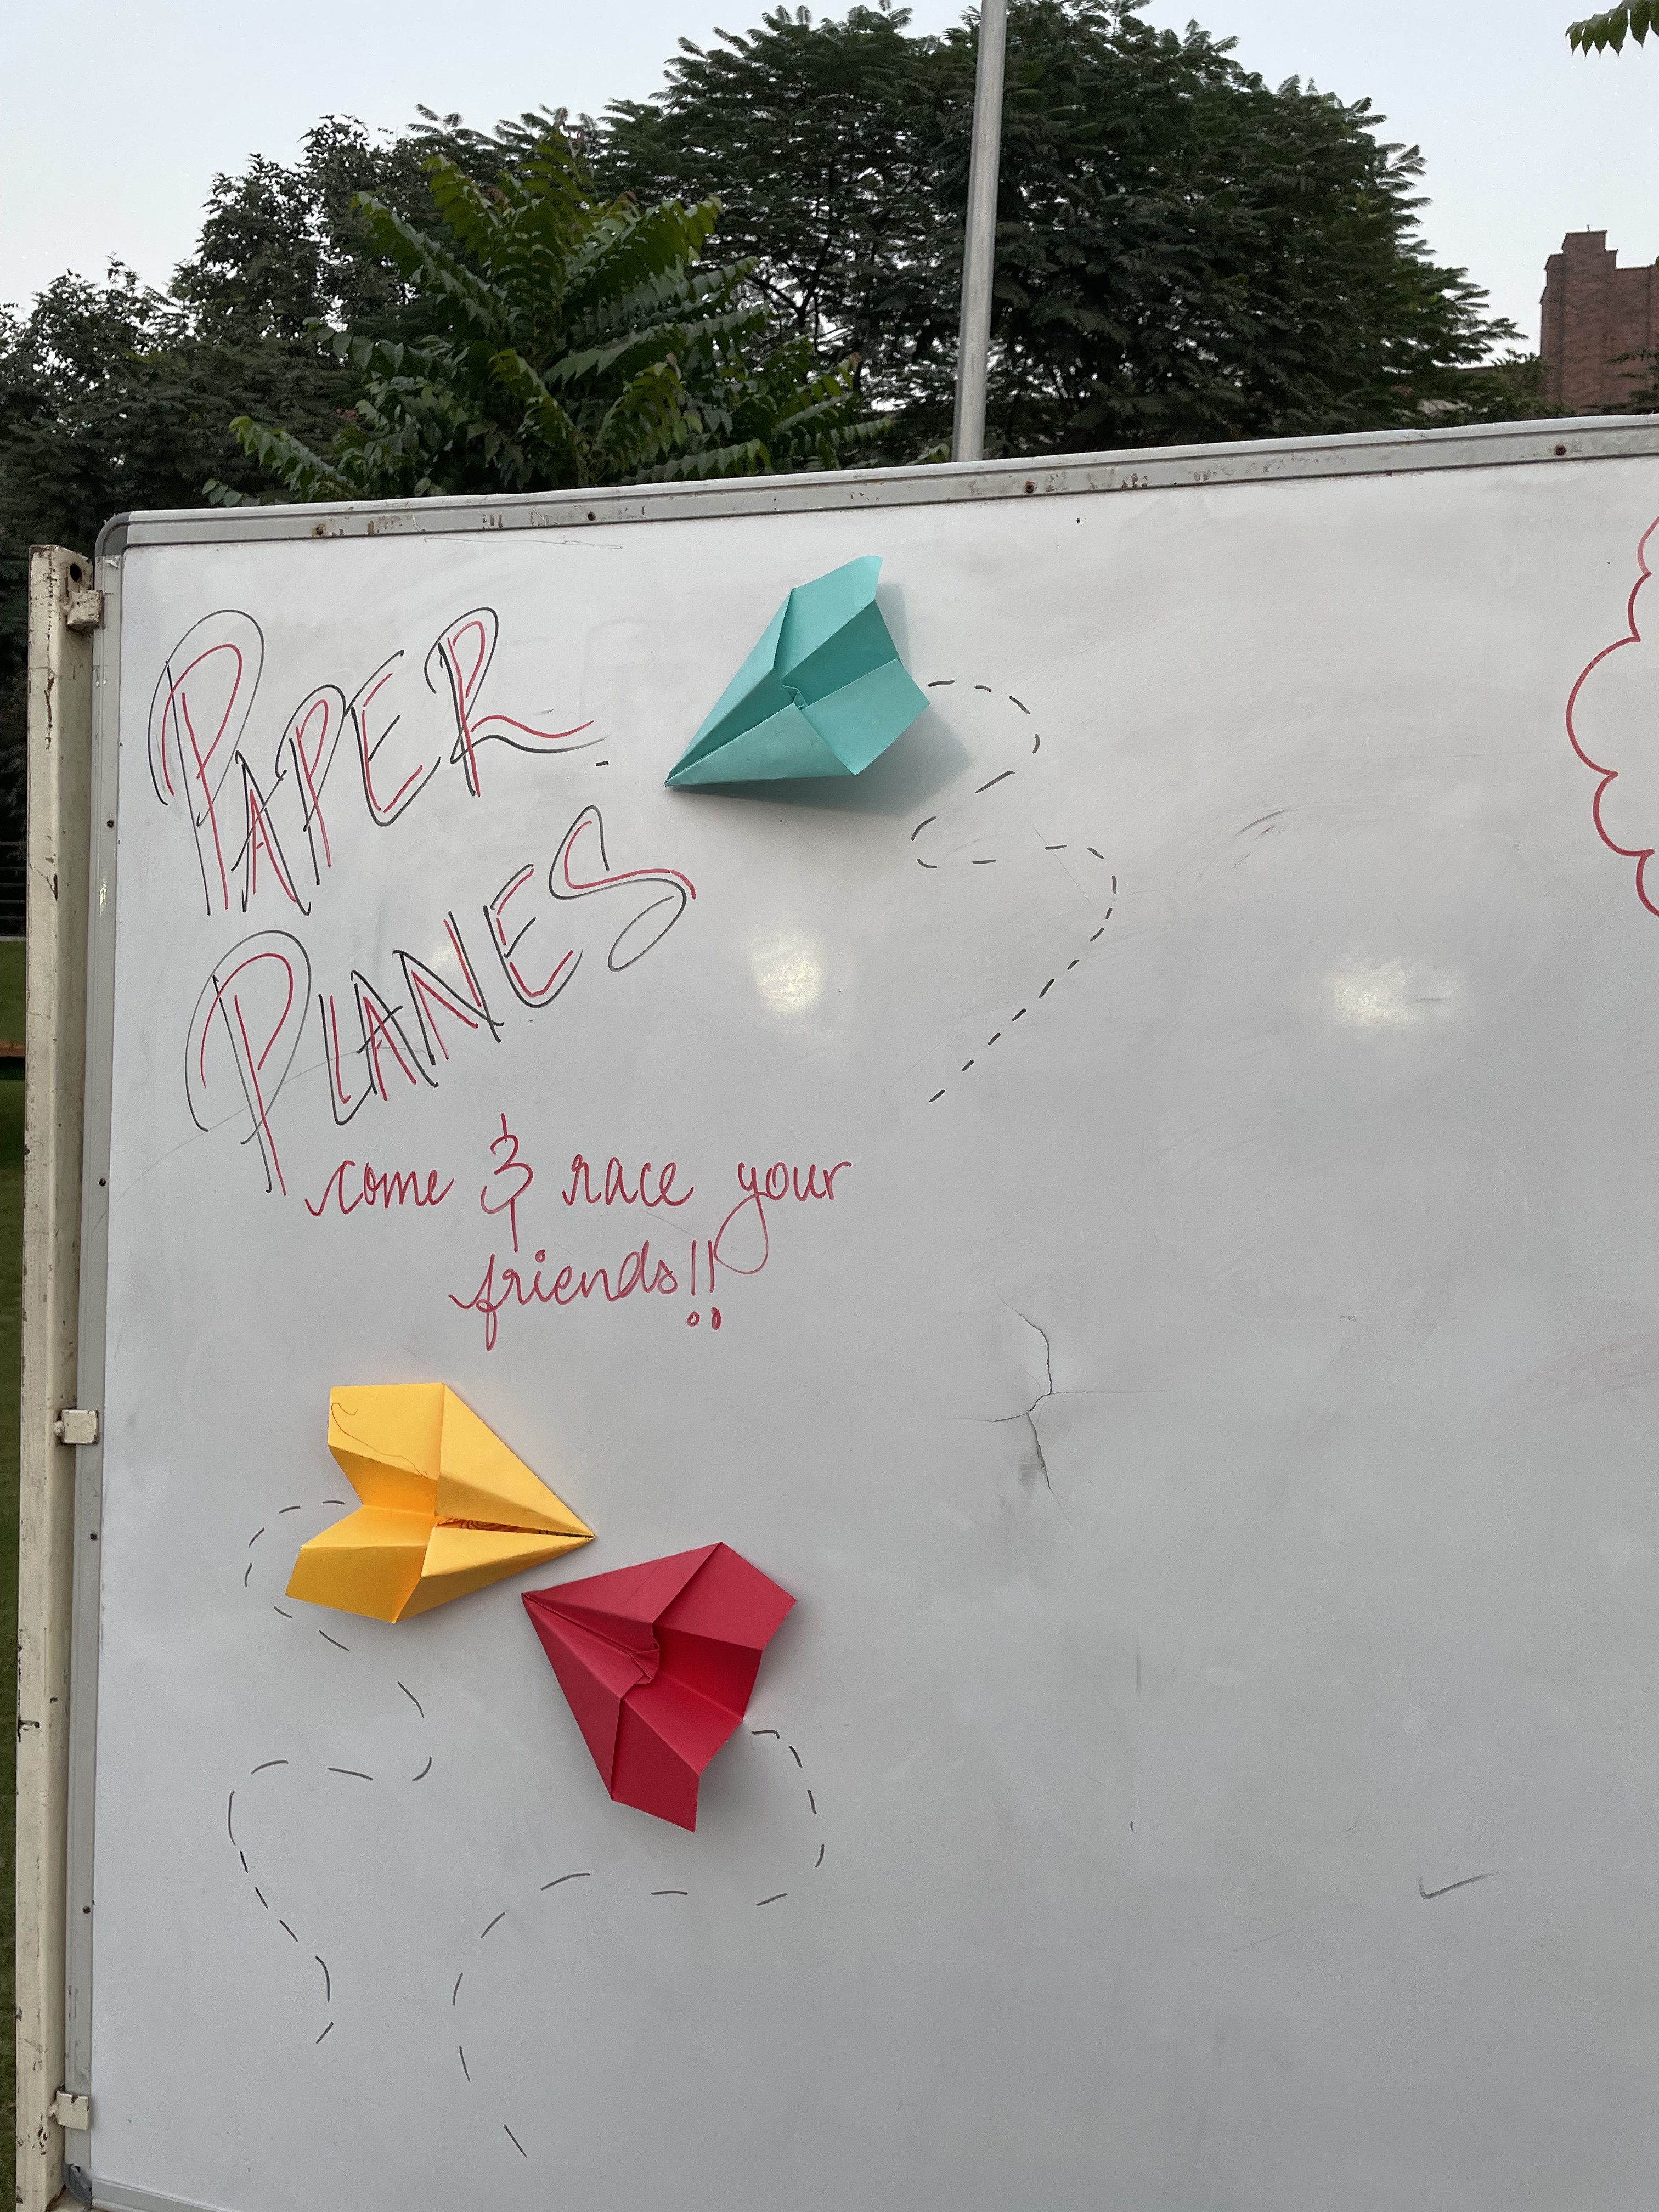 PAPER
PLANES
come & race your
friends!!